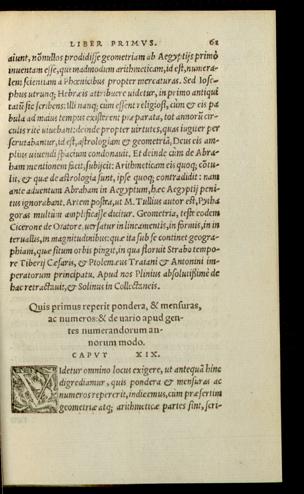 LIBER PRIMVS. 61
aiunt, nõnullos prodidisse geometriam ab Aegyptijs primò
inuentam esse, quẽadmodum arithmeticam, id est, numera-
lem scientiam à Phœnicibus propter mercaturas. Sed Iose-
phus utrunq; Hebræis attribuere uidetur, in primo antiqui
tatũ sic scribens: Illi nanq; cùm essent religiosi, cùm & eis pa
bula ad maius tempus existerent præparata, tot annorũ cir-
culis ritè uiuebant: deinde propter uirtutes, quas iugiter per
scrutabantur, id est, astrologiam & geometriã, Deus eis am-
plius uiuendi spacium condonauit. Et deinde cùm de Abra-
ham mentionem facit, subijcit: Arithmeticam eis quoq; cõtu-
lit, & quæ de astrologia sunt, ipse quoq; contradidit: nam
ante aduentum Abraham in Aegyptum, hæc Aegyptij peni-
tus ignorabant. Artem postea, ut M. Tullius autor est, Pytha
goras multùm amplificasse dicitur. Geometria, teste eodem
Cicerone de Oratore, uersatur in lineamentis, in formis, in in
teruallis, in magnitudinibus: quæ ita sub se continet geogra-
phiam, quæ situm orbis pingit, in qua floruit Strabo tempo-
re Tiberij Cæsaris, & Ptolemæus Traiani & Antonini im-
peratorum principatu. Apud nos Plinius absolutissimè de
hac retractauit, & Solinus in Collectaneis.
Quis primus reperit pondera, & mensuras,
ac numeros: & de uario apud gen-
tes numerandorum an-
norum modo.
CAPVT XIX.
Videtur omnino locus exigere, ut antequã hinc
digrediamur, quis pondera & mensuras ac
numeros repererit, indicemus, cùm præsertim
geometriæ atq; arithmeticæ partes sint, scri-